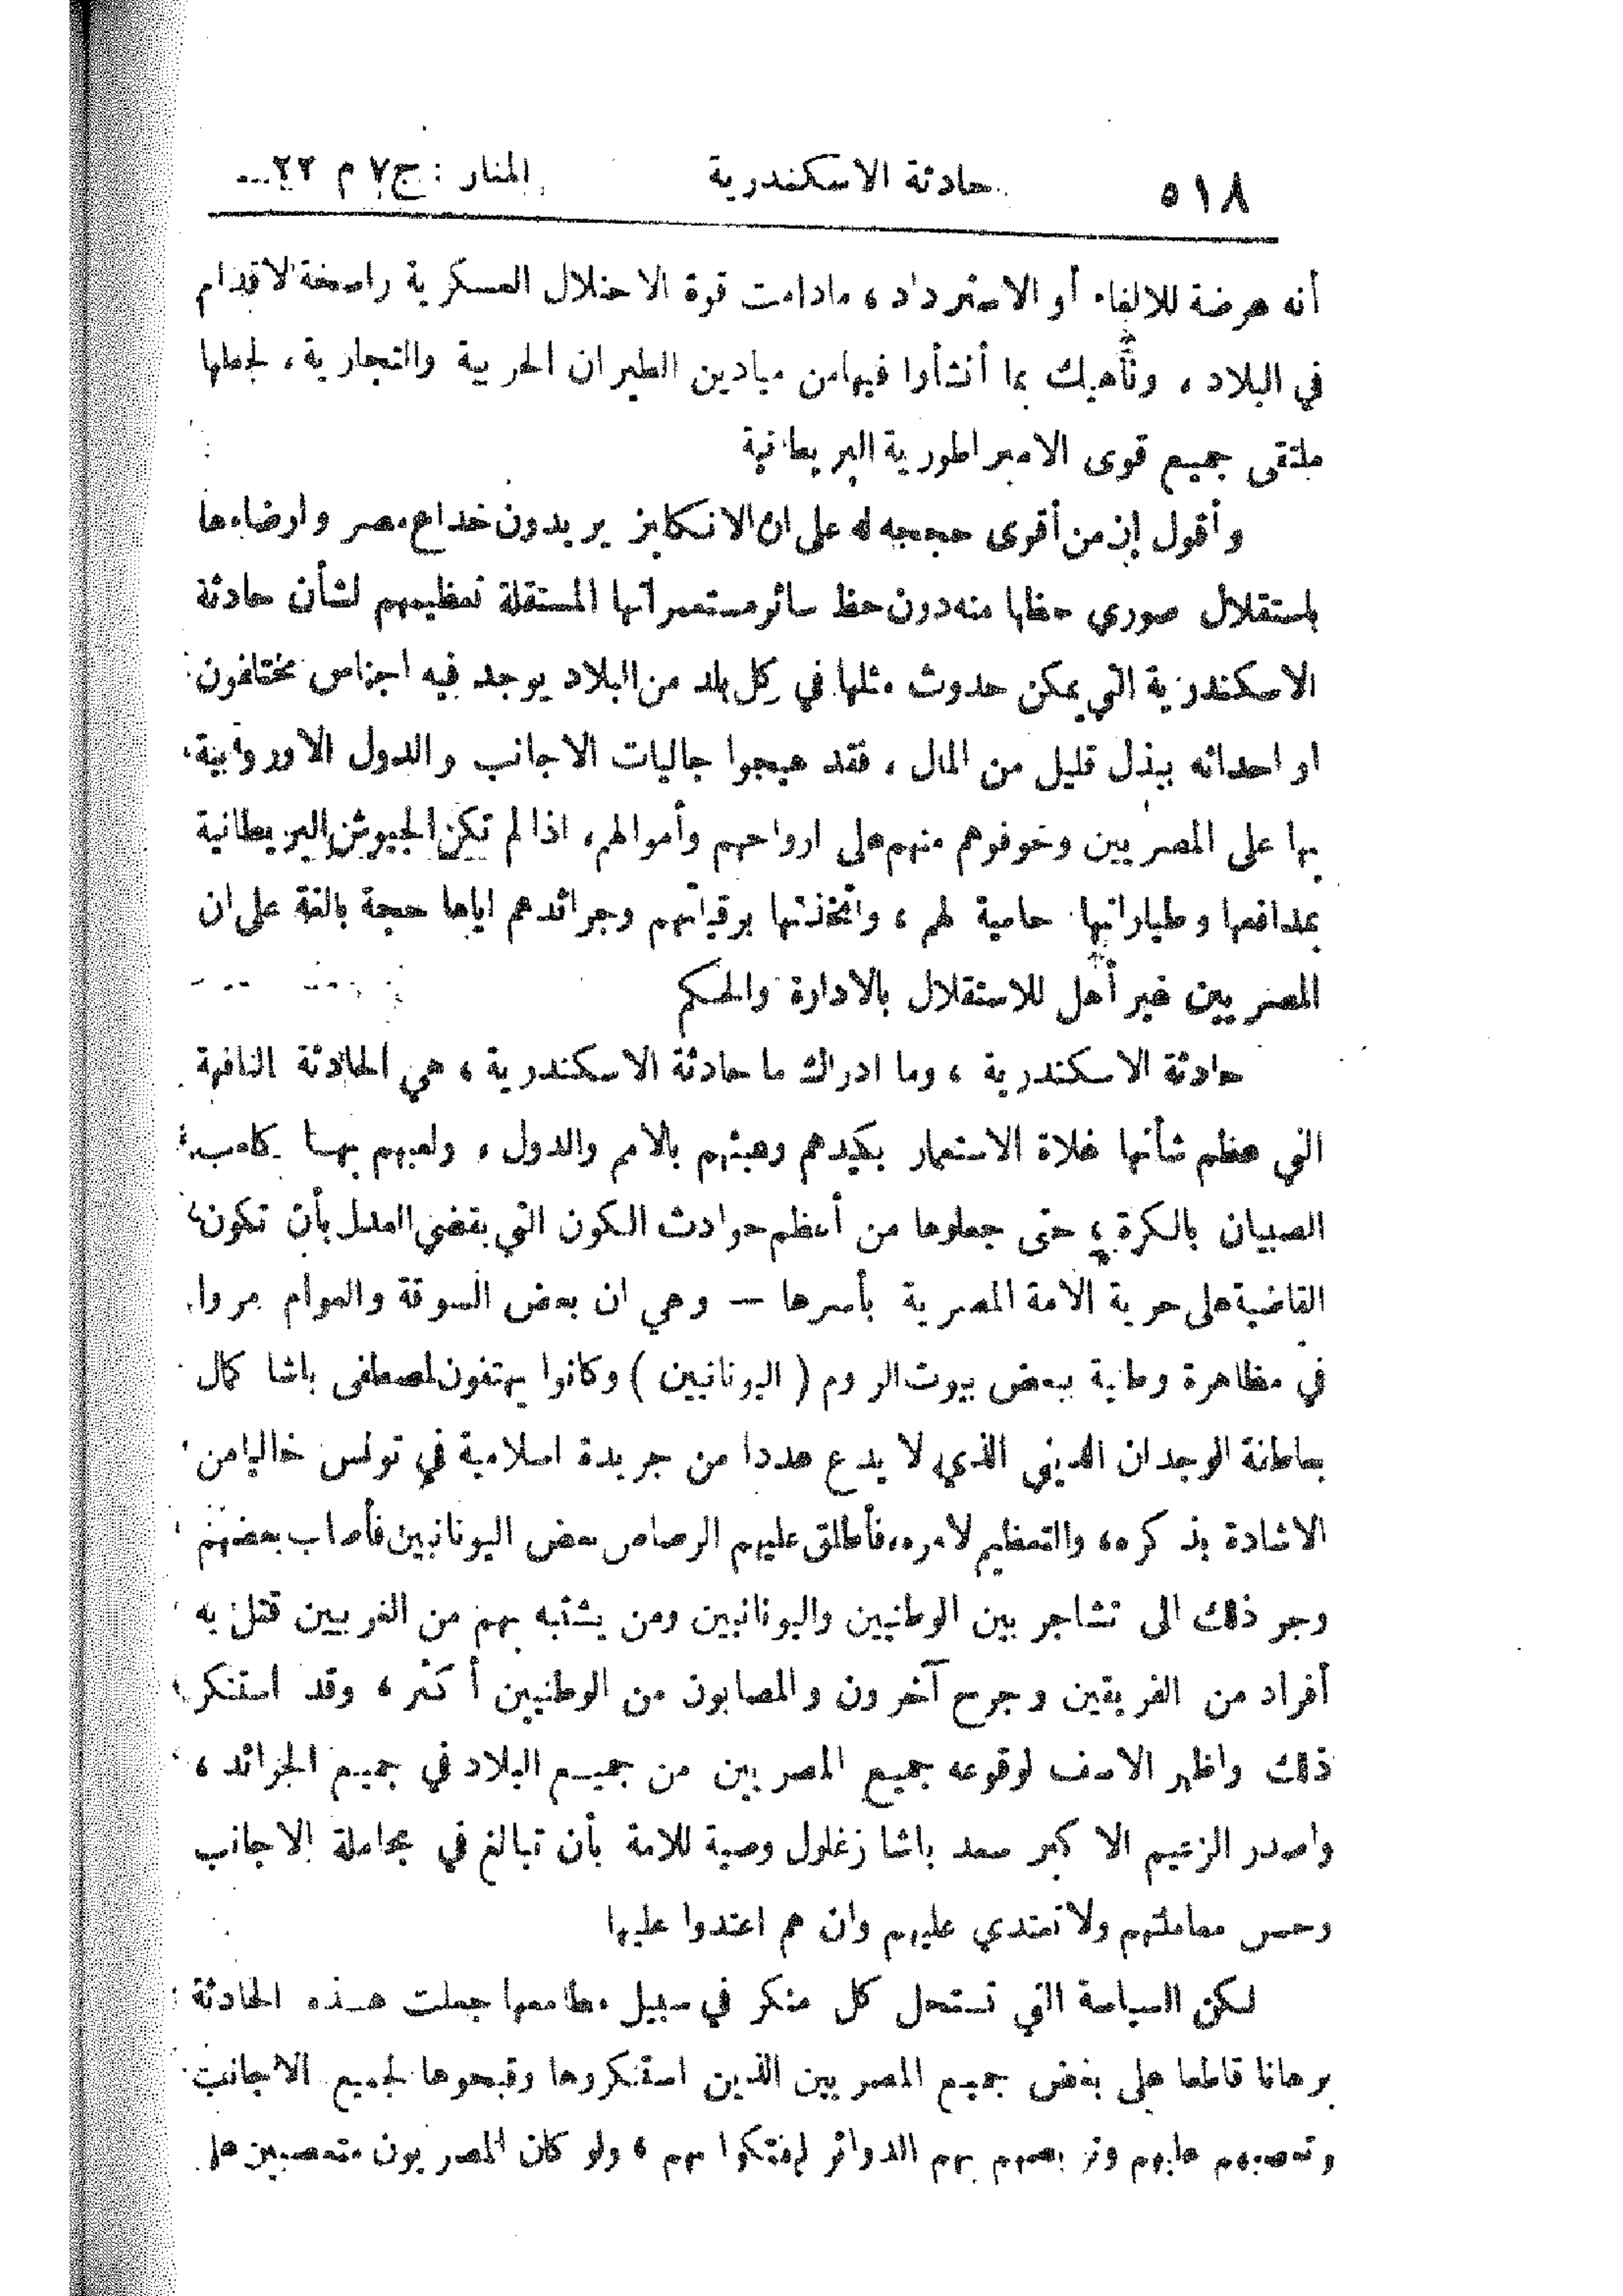 ٥١٨ حادثة الاسكندرية المنار : ج٧ م ٢٢
أنه عرضة للالغاء أو الاسترداد ، مادامت قوة الاحتلال العسكرية راسخة الاقدام
في البلاد ، وناهيك بما أنشأوا فيها من ميادين الطيران الحربية والتجارية ، لجعلها
ملتقى جميع قوى الامبراطورية البريطانية
وأقول إن من أقوى حججه له على ان الانكليز يريدون خداع مصر وارضاءها
باستقلال صوري حظها منه دون حظ سائر مستعمراتها المستقلة تعظيمهم لشأن حادثة
الاسكندرية التي يمكن حدوث مثلها في كل بلد من البلاد يوجد فيه اجناس مختلفون
او احداثه ببذل قليل من المال ، فقد هيجوا جاليات الاجانب والدول الاوروبية
بها على المصريين وخوفوهم منهم على ارواحهم وأموالهم ، اذا لم تكن الجيوش البريطانية
بمدافعها وطياراتها حامية لهم ، واتخذتها برقياتهم وجرائدهم اياها حجة بالغة على ان
المصريين غير أهل للاستقلال بالادارة والحكم
حادثة الاسكندرية ، وما ادراك ما حادثة الاسكندرية ، هي الحادثة التافهة
التي عظم شأنها غلاة الاستعمار بكيدهم وعبثهم بالامم والدول ، ولعبهم بها كلعب
الصبيان بالكرة ، حتى جعلوها من أعظم حوادث الكون التي يقضي العدل بأن تكون
القاضية على حرية الامة المصرية بأسرها — وهي ان بعض السوقة والعوام مروا
في مظاهرة وطنية ببعض بيوت الروم ( اليونانيين ) وكانوا يهتفون لمصطفى باشا كمال
بعاطفة الوجدان الديني الذي لا يدع عددا من جريدة اسلامية في تونس خاليا من
الاشادة بذكره ، والتعظيم لامره ، فأطلق عليهم الرصاص بعض اليونانيين فأصاب بعضهم
وجر ذلك الى تشاجر بين الوطنيين واليونانيين ومن يشتبه بهم من الغربيين قتل به
أفراد من الفريقين وجرح آخرون والمصابون من الوطنيين أكثر ، وقد استنكر
ذلك واظهر الاسف لوقوعه جميع المصريين من جميع البلاد في جميع الجرائد ،
واصدر الزعيم الاكبر سعد باشا زغلول وصية للامة بأن تبالغ في مجاملة الاجانب
وحسن معاملتهم ولا تعتدي عليهم وان هم اعتدوا عليها
لكن السياسة التي تستحل كل منكر في سبيل مطامعها جعلت هذه الحادثة
برهانا قاطعا على بغض جميع المصريين الذين استنكروها وقبحوها لجميع الاجانب
وتعصبهم عليهم وتربصهم بهم الدوائر ليفتكوا بهم ، ولو كان المصريون متعصبين على